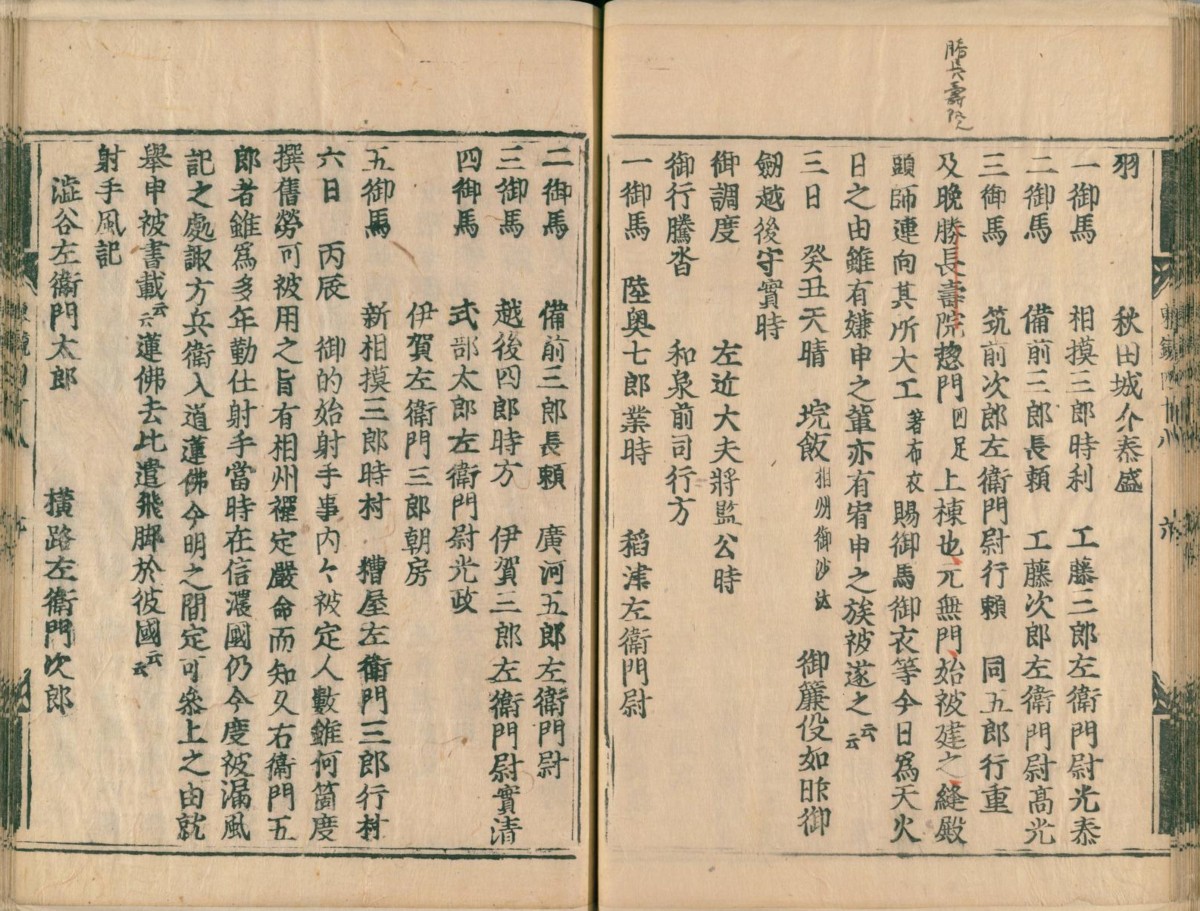 勝長壽院
羽　秋田城介泰盛
一御馬　相摸三郎時利　工藤三郎左衛門尉光泰
二御馬　備前三郎長頼　工藤次郎左衛門尉髙光
三御馬　筑前次郎左衛門尉行頼　同五郎行重
及晩勝長壽院惣門四足上棟也元無門始被建之縫殿
頭師連向其所大工著布衣賜御馬御衣等今日爲天火
日之由雖有嫌申之輩亦有宥申之族被遂之云云
三日　癸丑天晴　垸飯相州御沙汰　御簾役如昨御
劔越後守實時
御調度　左近大夫將監公時
御行騰沓　和泉前司行方
一御馬　陸奥七郎業時　稻津左衛門尉
二御馬　備前三郎長頼　廣河五郎左衛門尉
三御馬　越後四郎時方　伊賀三郎左衛門尉實清
四御馬　式部太郎左衛門尉光政
伊賀左衛門三郎朝房
五御馬　新相摸三郎時村　糟屋左衛門三郎行村
六日　丙辰　御的始射手事内々被定人數雖何箇度
撰舊勞可被用之旨有相州禪定嚴命而知久右衛門五
郎者雖爲多年勤仕射手當時在信濃國仍今度被漏風
記之處諏方兵衛入道蓮佛今明之間定可参上之由就
舉申被書載云云蓮佛去比遣飛脚於彼國云云
射手風記
澁谷左衛門太郎　横路左衛門次郎